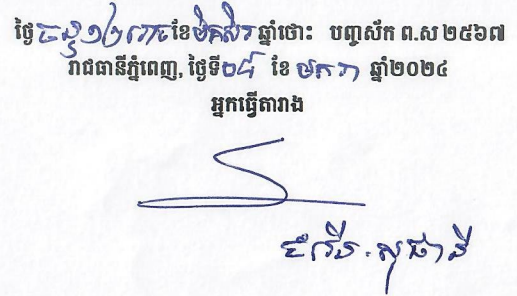 ថ្ងៃចន្ទ ១២ រោច ខែមិគសិរ ឆ្នាំថោះ បញ្ចស័ក ព.ស ២៥៦៧
រាជធានីភ្នំពេញ, ថ្ងៃទី០៨ ខែ មករា ឆ្នាំ២០២៤
អ្នកធ្វើតារាង
សុផានី